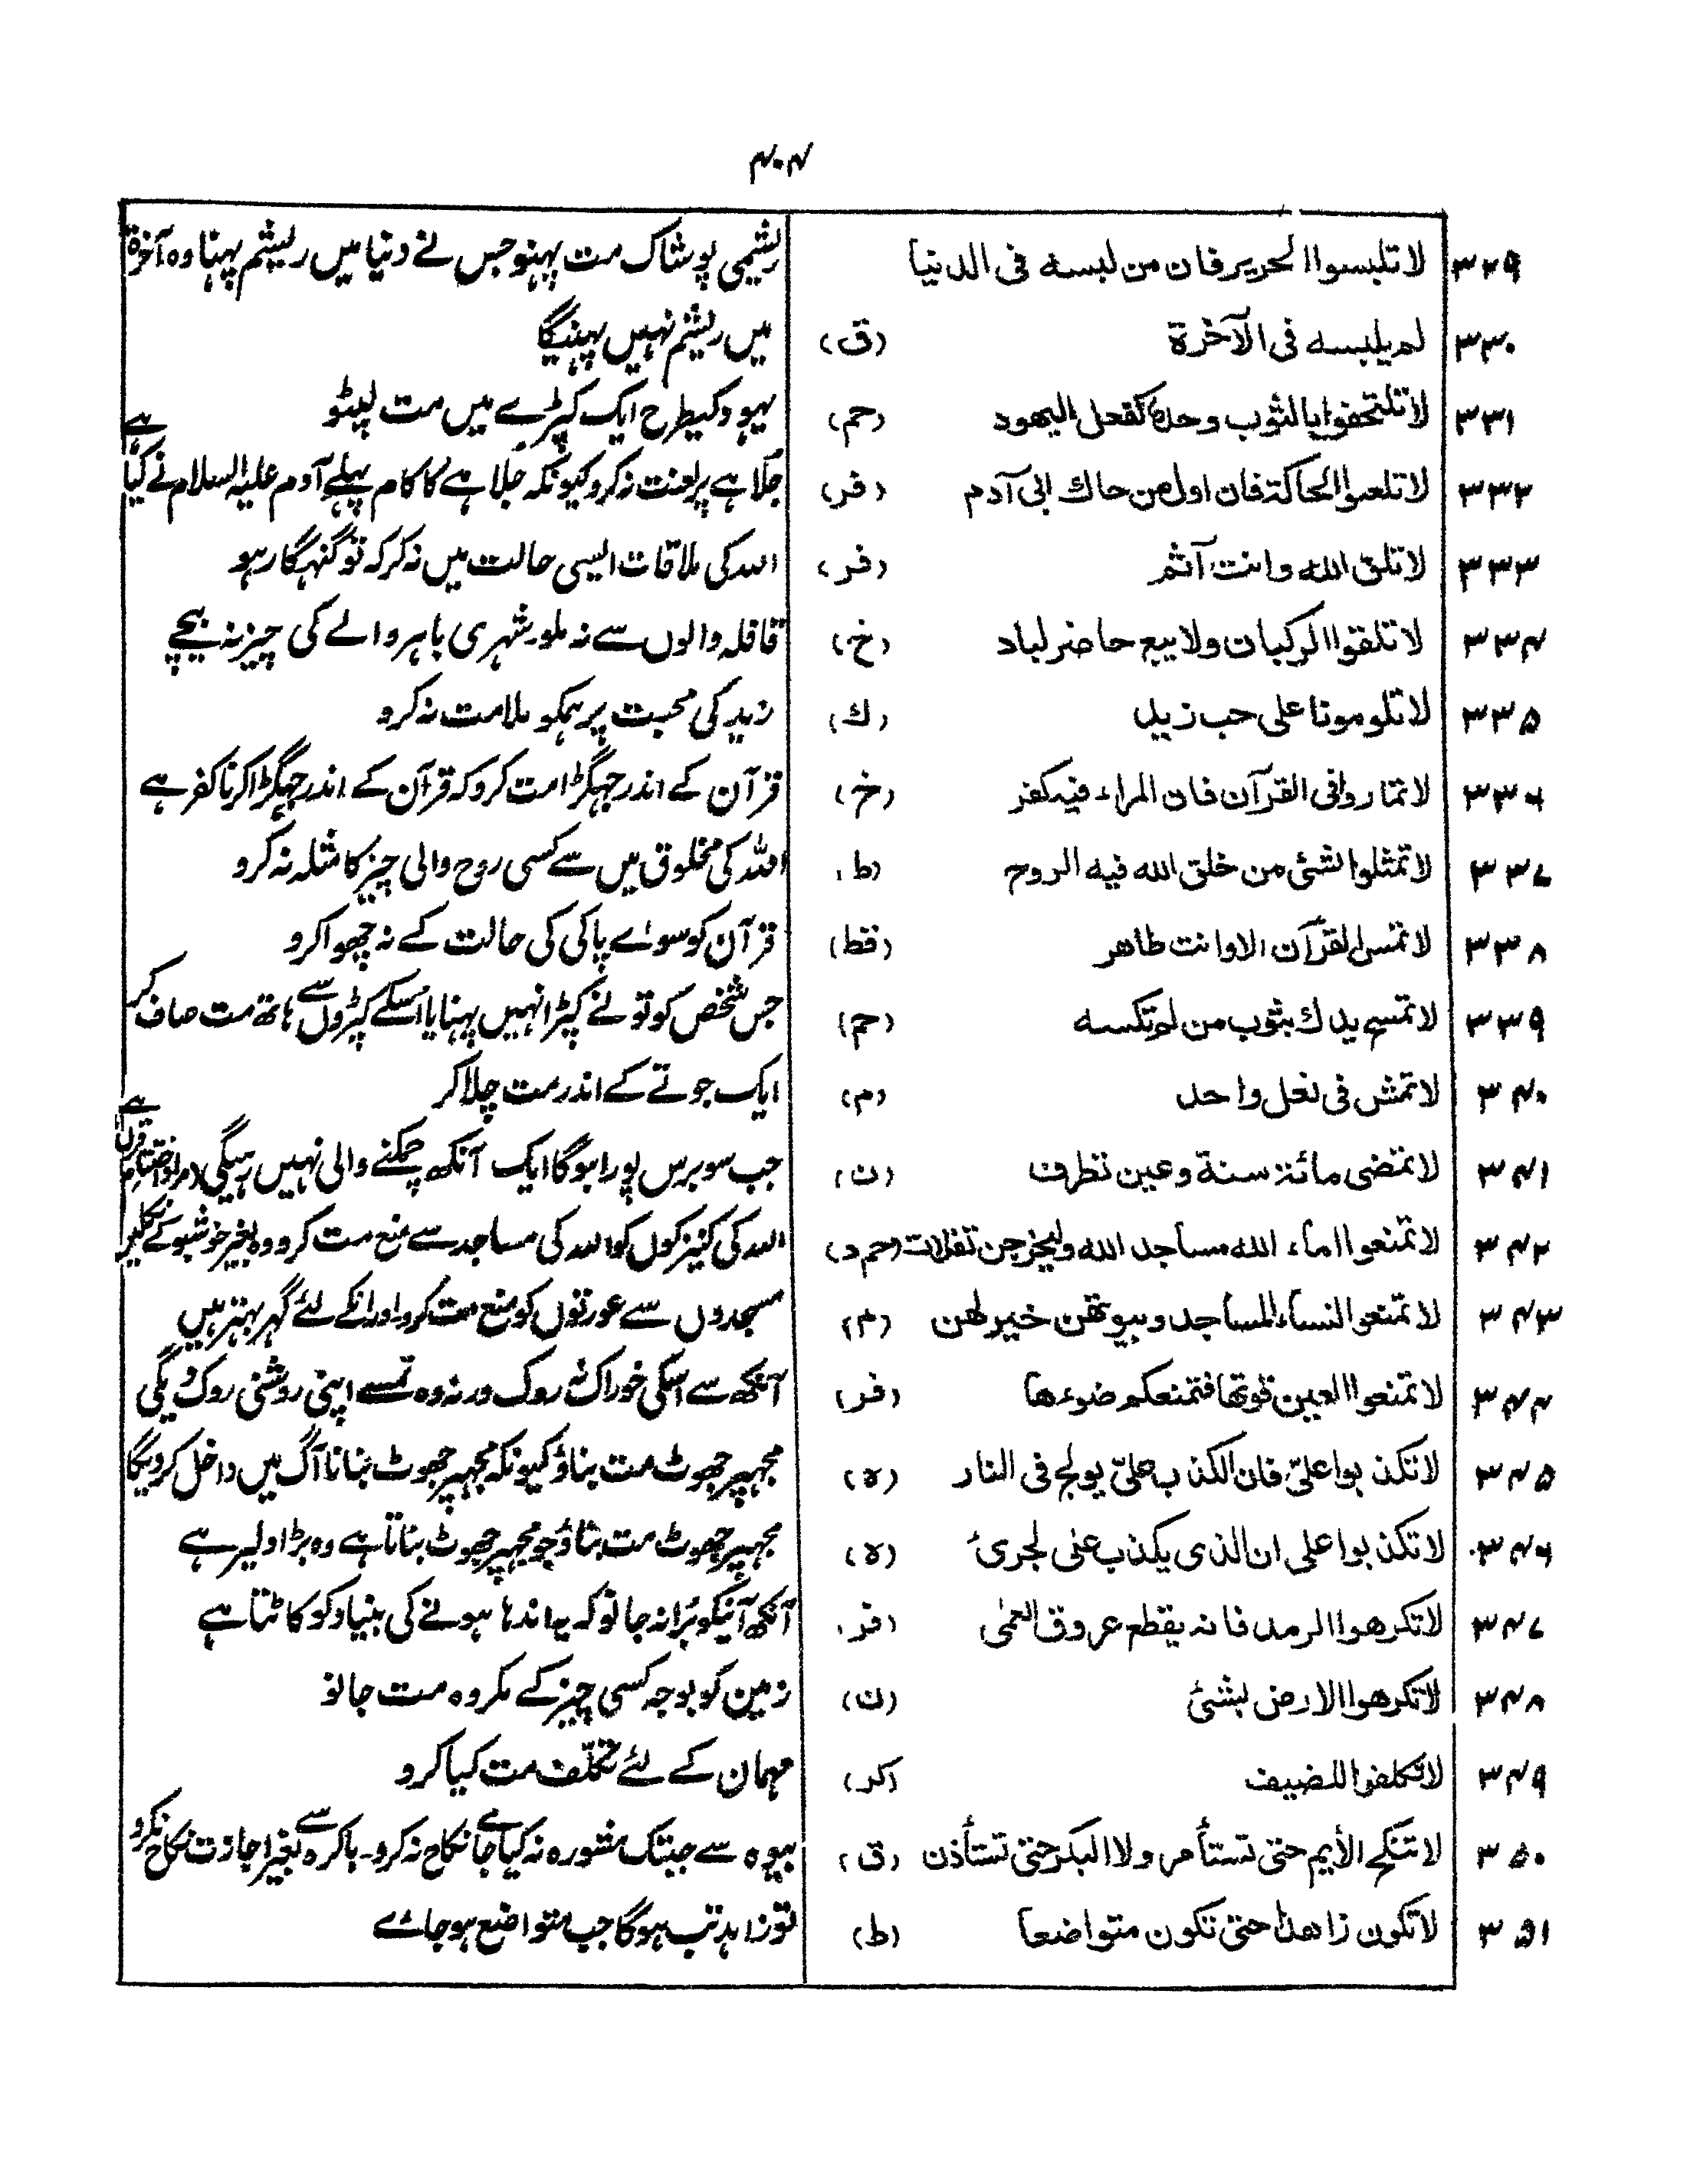 ۴۰۴
۳۲۹ لا تلبسوا الحرير فان من لبسه فى الدنيا ریشمی پوشاک مت پہنو جس نے دنیا میں ریشم پہنا وہ آخرۃ
۳۳۰ لم يلبسه فى الآخرة (ق) میں ریشم نہیں پہنیگا
۳۳۱ لا تلتحفوا بالثوب وحده كفعل اليهود (حم) یہود کیطرح ایک کپڑے میں مت لپٹو
۳۳۲ لا تلعنوا الحاكة فان اول من حاك ابى آدم (فر) جلاہے پر لعنت نہ کرو کیونکہ جلاہے کا کام پہلے آدم علیہ السلام نے کیا ہے
۳۳۳ لا تلق الله وانت آثم (فر) اللہ کی ملاقات ایسی حالت میں نہ کر کہ تو گنہگار ہو
۳۳۴ لا تلقوا الركبان ولا يبع حاضر لباد (خ) قافلہ والوں سے نہ ملو۔ شہری باہر والے کی چیز نہ بیچے
۳۳۵ لا تلومونا على حب زيد (ك) زید کی محبت پر ہمکو ملامت نہ کرو
۳۳۶ لا تماروا فى القرآن فان المراء فيه كفر (خ) قرآن کے اندر جہگڑا مت کرو کہ قرآن کے اندر جہگڑا کرنا کفر ہے
۳۳۷ لا تمثلوا بشئ من خلق الله فيه الروح (ط) اللہ کی مخلوق میں سے کسی روح والی چیز کا مثلہ نہ کرو
۳۳۸ لا تمس القرآن الا وانت طاهر (قط) قرآن کو سواے پاکی کی حالت کے نہ چھوا کرو
۳۳۹ لا تمسح يدك بثوب من لم تكسه (حم) جس شخص کو تو نے کپڑا نہیں پہنایا اسکے کپڑوں سے ہاتھ مت صاف کر
۳۴۰ لا تمش فى نعل واحد (م) ایک جوتے کے اندر مت چلا کر
۳۴۱ لا تمضى مائة سنة وعين تطرف (ن) جب سو برس پورا ہوگا ایک آنکھ چمکنے والی نہیں رہیگی (مراد اختتام قرن ہے
۳۴۲ لا تمنعوا اماء الله مساجد الله وليخرجن تفلات (حم د) اللہ کی کنیزکوں کو اللہ کی مساجد سے منع مت کرو وہ بغیر خوشبو کے نکلیں
۳۴۳ لا تمنعوا النساء المساجد وبيوتهن خير لهن (م) مسجدوں سے عورتوں کو منع مت کرو اور انکے لئے گہر بہتر ہیں
۳۴۴ لا تمنعوا العين قوتها فتمنعكم ضوءها (فر) آنکھ سے اسکی خوراک نہ روک ورنہ وہ تمسے اپنی روشنی روک دیگی
۳۴۵ لا تكذبوا علىّ فان الكذب علىّ يولج فى النار (ہ) مجہپر جھوٹ مت بناؤ کیونکہ مجہپر جھوٹ بنانا آگ میں داخل کر دیگا
۳۴۶ لا تكذبوا على ان الذى يكذب عنى لجرئ (ہ) مجہپر جھوٹ مت بناؤ جو مجہپر جھوٹ بناتا ہے وہ بڑا دلیر ہے
۳۴۷ لا تكرهوا الرمد فانه يقطع عروق العمٰى (فر) آنکھ آنیکو بُرا نہ جانو کہ یہ اندہا ہونے کی بنیاد کو کاٹتا ہے
۳۴۸ لا تكرهوا الارض بشئ (ن) زمین کو بوجہ کسی چیز کے مکروہ مت جانو
۳۴۹ لا تكلفوا للضيف (كر) مہمان کے لئے تکلّف مت کیا کرو
۳۵۰ لا تنكح الأيم حتى تستأمر ولا البكر حتى تستأذن (ق) بیوہ سے جبتک مشورہ نہ کیا جاے نکاح نہ کرو۔ باکرہ سے بغیر اجازت نکاح نکرو
۳۵۱ لا تكون زاهدا حتى تكون متواضعا (ط) تو زاہد تب ہوگا جب متواضع ہو جاے